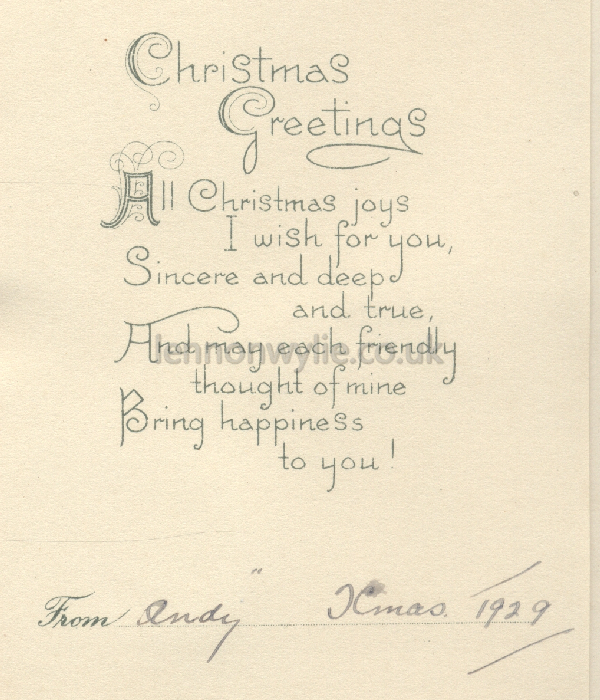 Christmas
Greetings
All Christmas joys
I wish for you,
Sincere and deep
and true,
And may each friendly
thought of mine
Bring happiness
to you!
lennonwylie.co.uk
From Andy" Xmas. 1929